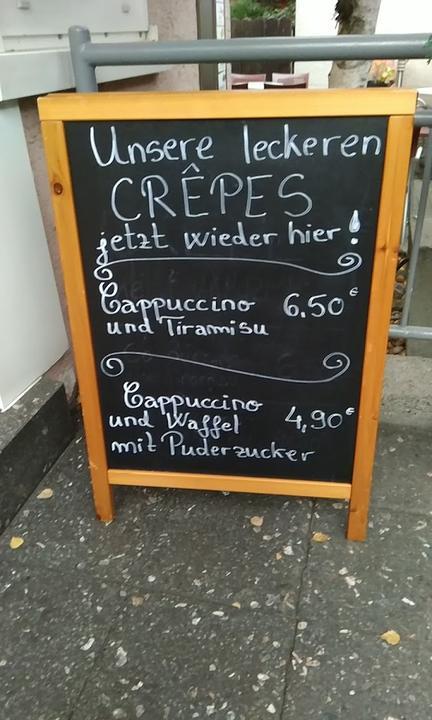 Unsere leckeren
CRÊPES
jetzt wieder hier!
Cappuccino 6.50 €
und Tiramisu
Cappuccino
und Waffel 4,90 €
mit Puderzucker